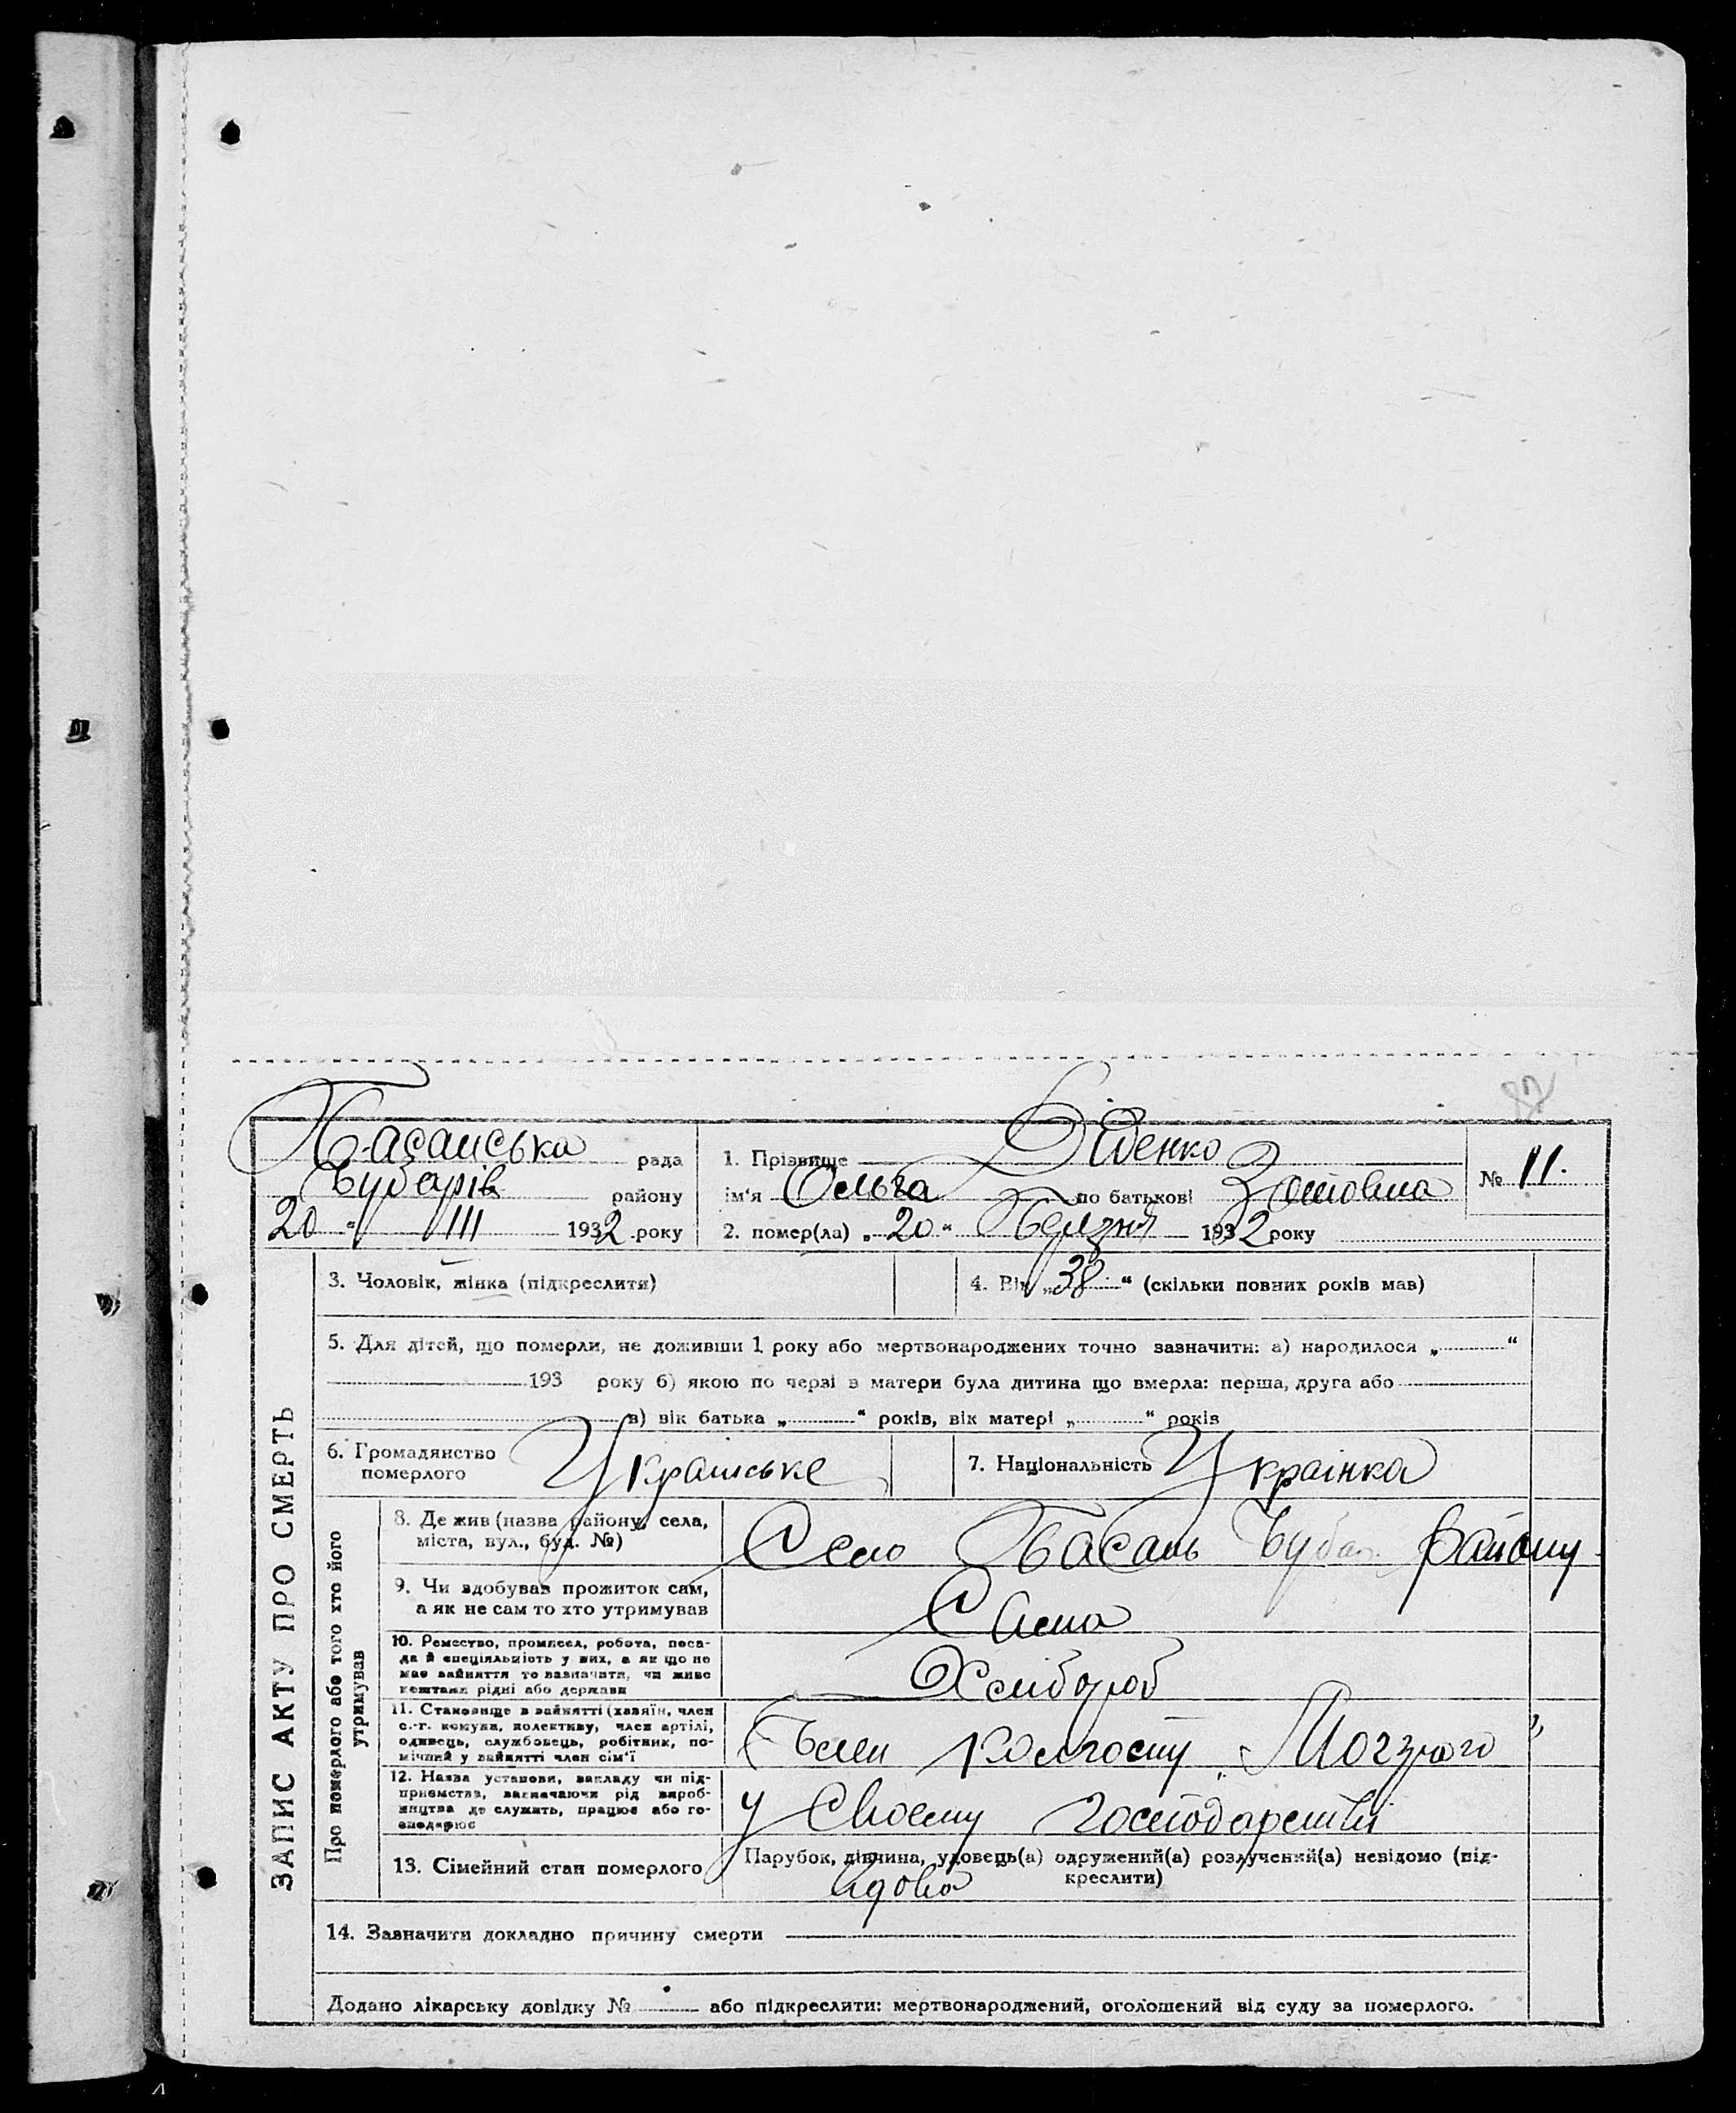 82
Басанська рада
Чубарів району
20 " III 1932 року
1. Прізвище Діденко
ім'я Ольга по батькові Зотовна
2. помер(ла) „ 20 " Березня 1932 року
№ 11.
ЗАПИС АКТУ ПРО СМЕРТЬ
3. Чоловік, жінка (підкреслити)
4. Вік „ 38 " (скільки повних років мав)
5. Для дітей, що померли, не доживши 1 року або мертвонароджених точно зазначити: а) народилося „ "
193 року б) якою по черзі в матери була дитина що вмерла: перша, друга або
в) вік батька „ " років, вік матері „ " років
6. Громадянство
померлого
Українське
7. Національність Українка
Про померлого або того хто його
утримував
8. Де жив (назва району, села,
міста, вул., буд. №)
Село Басань Чубар. району
9. Чи здобував прожиток сам,
а як не сам то хто утримував
Сама
10. Ремество, промисел, робота, поса-
да й спеціяльність у них, а як що не
має зайняття то зазначити, чи живе
коштами рідні або держави
Хлібороб
11. Становище в зайнятті (хазяїн, член
с.-г. комуни, колективу, член артілі,
одинець, службовець, робітник, по-
мічний у зайнятті член сім'ї
Член колгоспу „ "
12. Назва установи, закладу чи під-
приємства, зазначаючи рід вироб-
ництва де служить, працює або го-
сподарює
у своєму господарстві
13. Сімейний стан померлого
Парубок, дівчина, удовець(а) одружений(а) розлучений(а) невідомо (під-
креслити)
Удова
14. Зазначити докладно причину смерти
Додано лікарську довідку № або підкреслити: мертвонароджений, оголошений від суду за померлого.